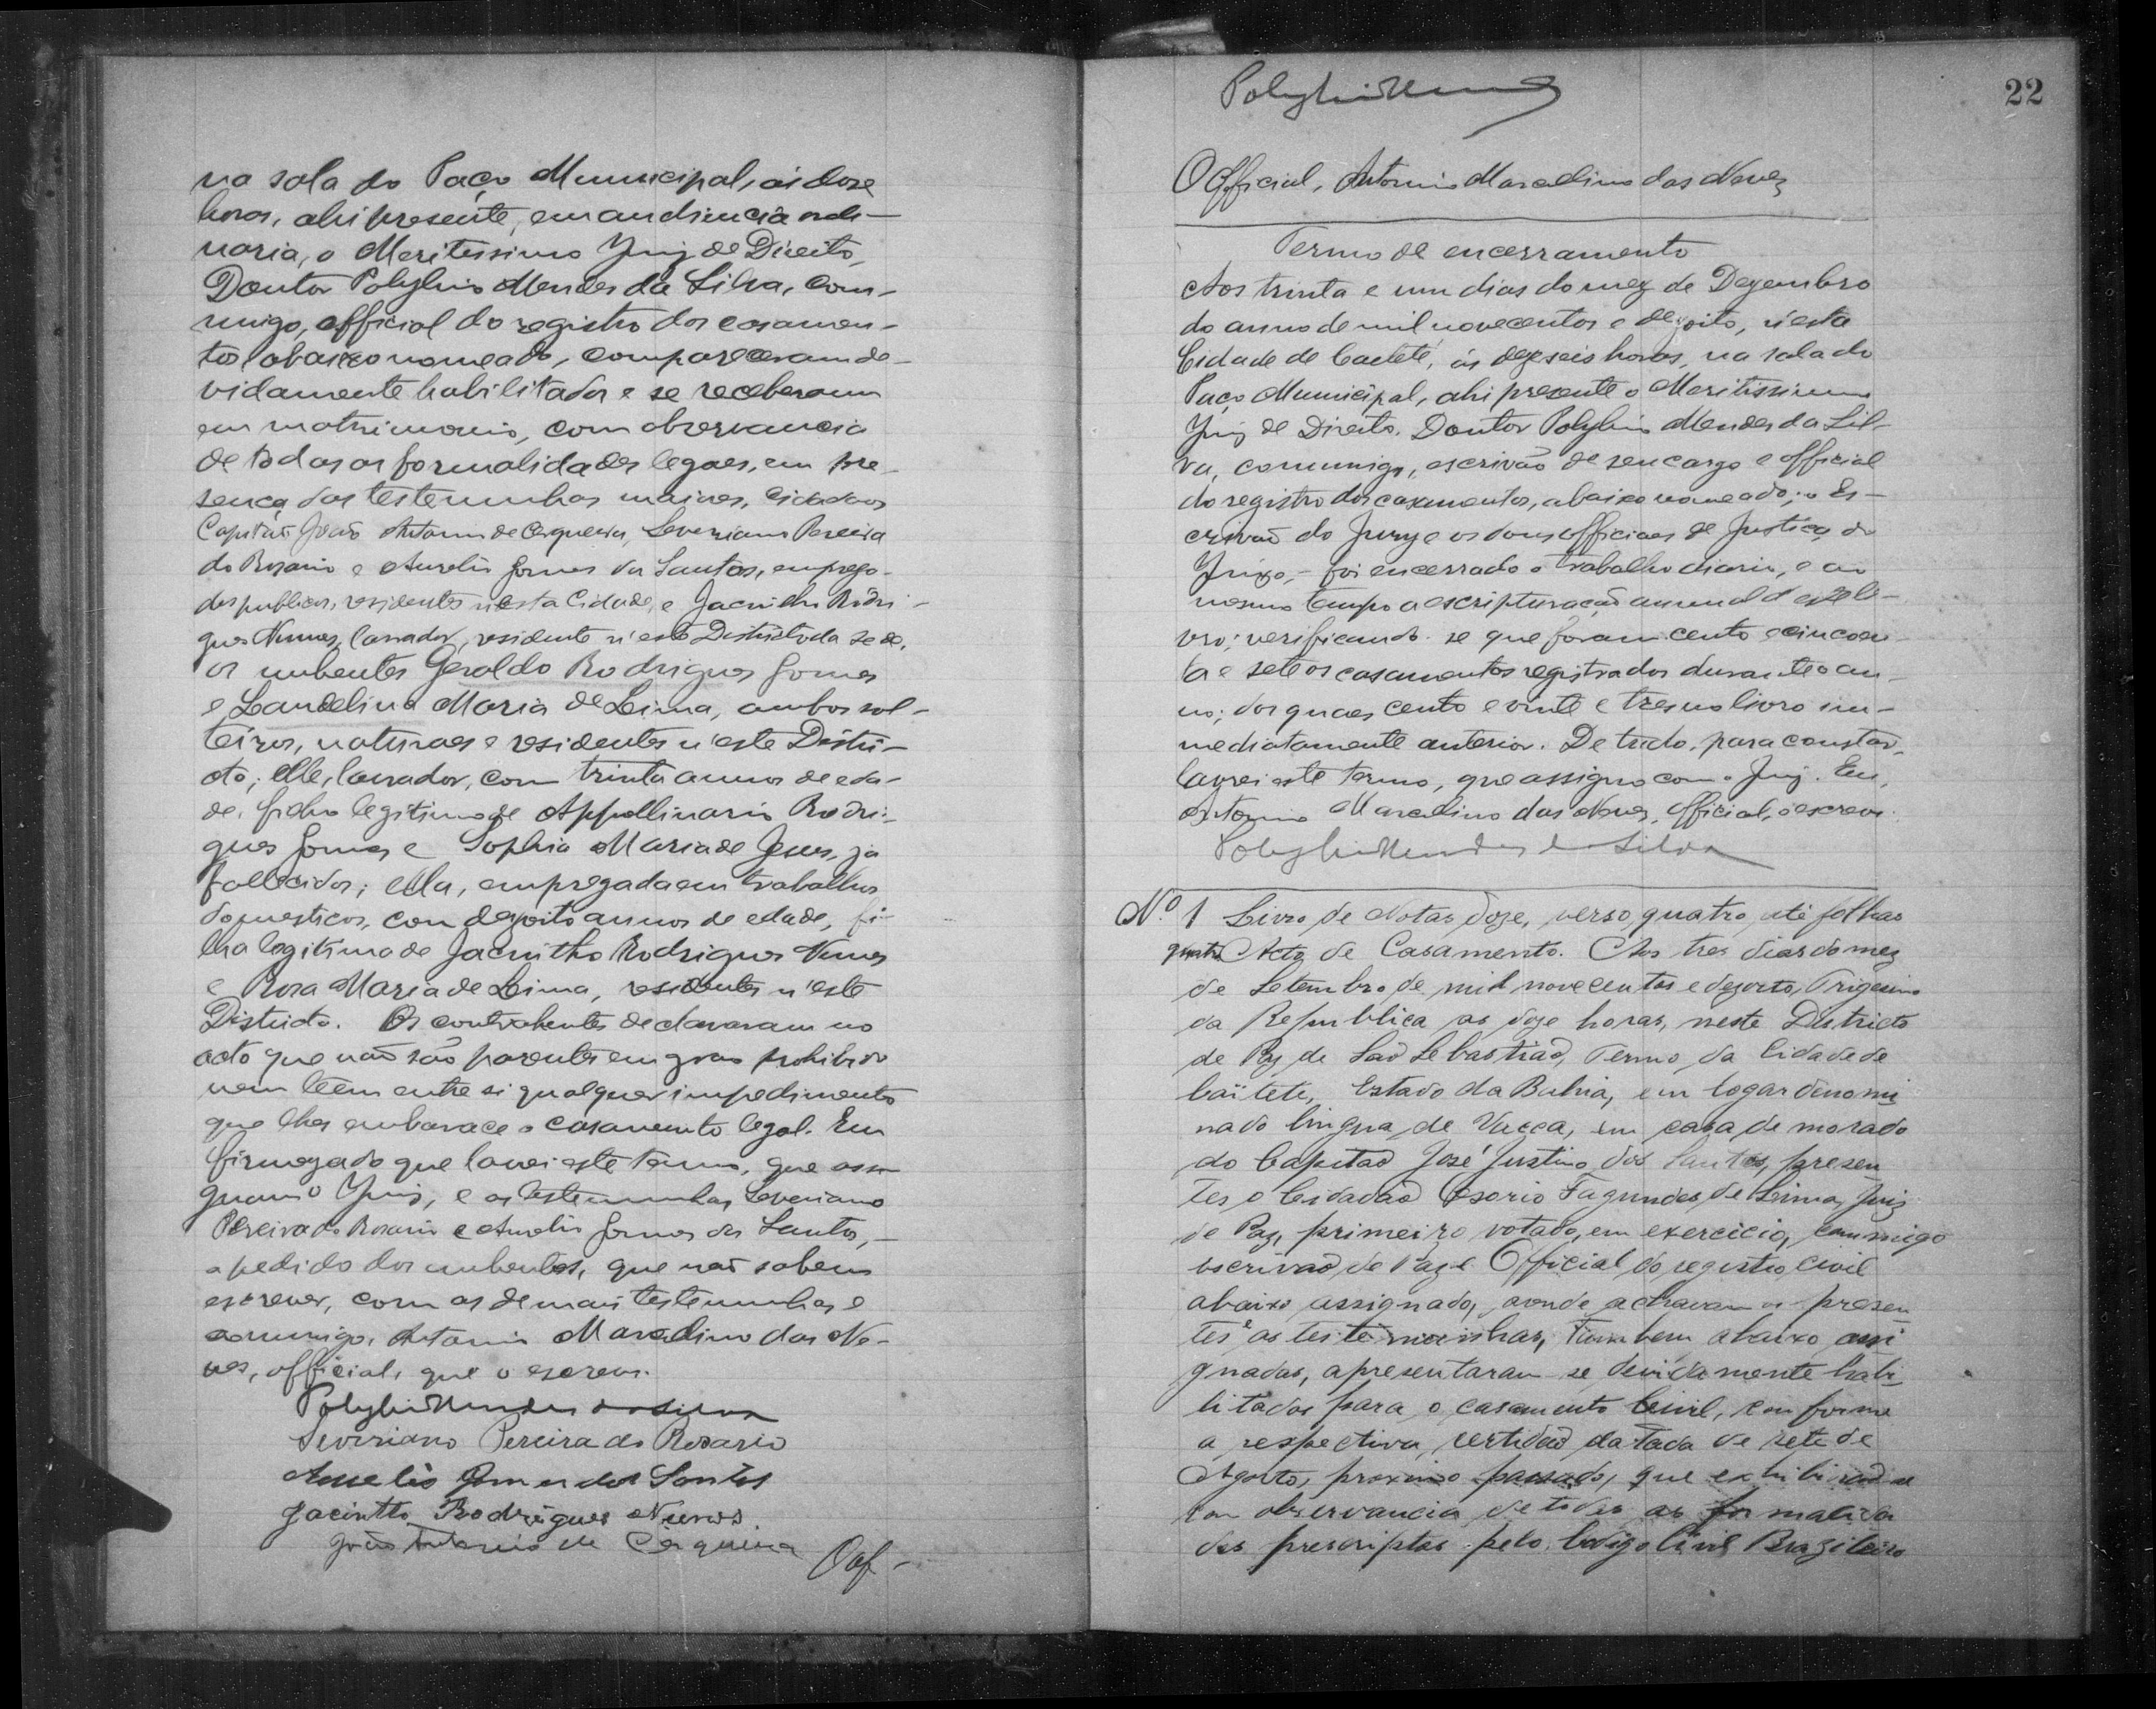 na sala do Paço Municipal, ás doze
horas, ahi presente, em audiencia ordi-
naria, o Meritissimo Juiz de Direito,
Doutor Polybio Mendes da Silva, com-
migo, official do registro dos casamen-
tos, abaixo nomeado, compareceram de-
vidamente habilitados e se receberam
em matrimonio, com observancia
de todas as formalidades legaes, em pre-
sença das testemunhas maiores, cidadãos
Capitão João Antonio de Cerqueira, Severiano Pereira
do Rosario e Aurelio Gomes dos Santos, emprega-
dos publicos, residentes n'esta Cidade, e Jacintho Rodri-
gues Nunes, lavrador, residente n'este Districto da Sede,
os nubentes Geraldo Rodrigues Gomes
e Laudelina Maria de Lima, ambos sol-
teiros, naturaes e residentes n'este Distri-
cto; elle, lavrador, com trinta annos de eda-
de, filho legitimo de Appollinario Rodri-
gues Gomes e Sophia Maria de Jesus, já
fallecidos; ella, empregada em trabalhos
domesticos, com dezoito annos de edade, fi-
lha legitima de Jacintho Rodrigues Nunes
e Rosa Maria de Lima, residentes n'este
Districto. Os contrahentes declararam no
acto que não são parentes em grao prohibido
nem têem entre si qualquer impedimento
que lhes embarace o casamento legal. Em
firmeza do que lavrei este termo, que assi-
gnam o Juiz, e as testemunhas Severiano
Pereira do Rosario e Aurelio Gomes dos Santos,
a pedido dos nubentes, que não sabem
escrever, com as demais testemunhas e
commigo, Antonio Marcelino das Ne-
ves, official, que o escrevi.
Polybio Mendes da Silva
Severiano Pereira do Rosario
Aurelio Gomes dos Santos
Jacintho Rodrigues Nunes.
João Antonio de Cerqueira
Oof-
Polybio Mendes
22
O Official, Antonio Marcelino das Neves
Termo de encerramento
Aos trinta e um dias do mez de Dezembro
do anno de mil novecentos e dezoito, n'esta
Cidade de Caeteté, ás dezeseis horas, na sala do
Paço Municipal, ahi presente o Meritissimo
Juiz de Direito, Doutor Polybio Mendes da Sil-
va, commigo, escrivão de seu cargo e official
do registro dos casamentos, abaixo nomeado; o Es-
crivão do Jury e os dous officiaes de Justiça do
Juizo, - foi encerrado o trabalho diario, e ao
mesmo tempo a escripturação annual d'este li-
vro; verificando-se que foram cento e cincoen-
ta e sete os casamentos registrados durante o an-
no; dos quaes cento e vinte e tres no livro im-
mediatamente anterior. De tudo, para constar,
lavrei este termo, que assigno com o Juiz. Eu,
Antonio Marcelino das Neves, official, o escrevi.
Polybio Mendes da Silva
Nº 1 Livro de Notas doze, verso, quatro, até folhas
quatro Acto de Casamento. Aos tres dias do mez
de Setembro de mil novecentos e dezoito, Trigesimo
da Republica as doze horas, neste Districto
de Paz de São Sebastião, Termo da Cidade de
Caïteté, Estado da Bahia, em logar denomi
nado Lingua de Vacca, em casa de morada
do Capitão José Justino dos Santos, presen
tes o Cidadão Osorio Fagundes de Lima, Juiz
de Paz, primeiro votado, em exercicio, commigo
escrivão de Paz e Official do registro civil
abaixo assignado, aonde achavam os presen
tes e as testemunhas, tambem abaixo assi
gnadas, apresentaram se devidamente habi
litados para o casamento Civil, conforme
a respectiva certidão datada de sete de
Agosto, proximo passado, que exhibirão se
com observancia de todas as formalida
des prescriptas pelo Codigo Civil Brazileiro